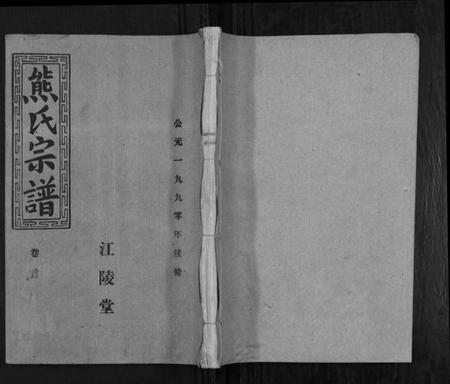 熊氏宗譜
卷首
江陵堂
公元一九九零年续修